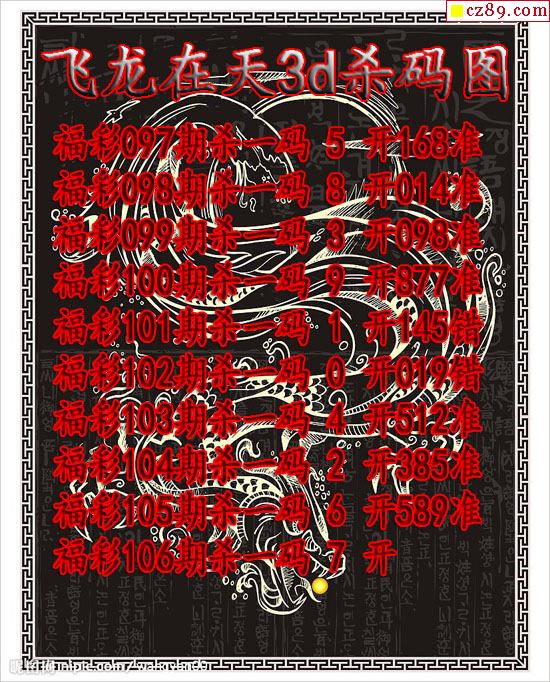 cz89.com
飞龙在天3d杀码图
福彩097期杀一码 5 开168准
福彩098期杀一码 8 开014准
福彩099期杀一码 3 开098准
福彩100期杀一码 9 开877准
福彩101期杀一码 1 开145错
福彩102期杀一码 0 开019错
福彩103期杀一码 4 开512准
福彩104期杀一码 2 开385准
福彩105期杀一码 6 开589准
福彩106期杀一码 7 开